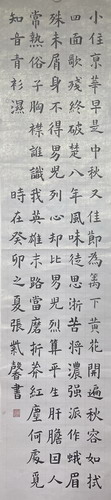 小住京華早是中秋又佳節為籬下黃花開遍秋容如拭
四面歌殘終破楚八年風味徒思浙苦將濃強派作蛾眉
殊未屑身不得男兒列心卻比男兒烈算平生肝膽因人
常熱俗子胸襟誰識我英雄末路當磨折莽紅塵何處覓
知音青衫濕 時在癸卯之夏張紫馨書